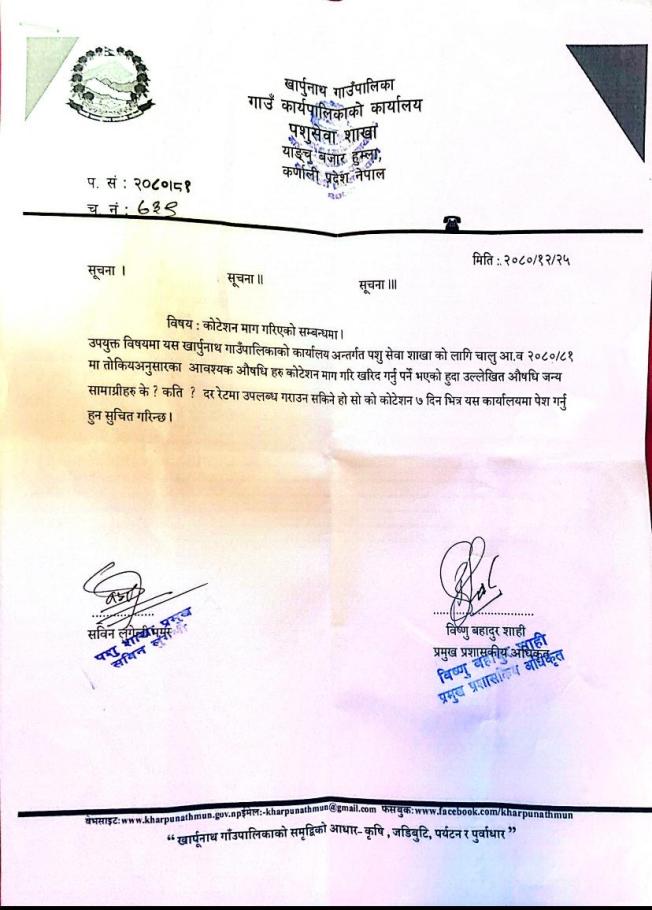 खार्पुनाथ गाउँपालिका
गाउँ कार्यपालिकाको कार्यालय
पशुसेवा शाखा
याङ्चु बजार हुम्ला,
कर्णाली प्रदेश नेपाल
प. सं : २०८०।८१
च नं : ६३९
मिति :. २०८०/१२/२५
सूचना ।
सूचना ॥
सूचना ॥।
विषय : कोटेशन माग गरिएको सम्बन्धमा ।
उपयुक्त विषयमा यस खार्पुनाथ गाउँपालिकाको कार्यालय अन्तर्गत पशु सेवा शाखा को लागि चालु आ.व २०८०/८१
मा तोकियअनुसारका आवश्यक औषधि हरु कोटेशन माग गरि खरिद गर्नु पर्ने भएको हुदा उल्लेखित औषधि जन्य
सामाग्रीहरु के ? कति ? दर रेटमा उपलब्ध गराउन सकिने हो सो को कोटेशन ७ दिन भित्र यस कार्यालयमा पेश गर्नु
हुन सुचित गरिन्छ ।
सविन
पशु शाखा प्रमुख
सविन
विष्णु बहादुर शाही
प्रमुख प्रशासकीय अधिकृत
विष्णु बहादुर शाही
प्रमुख प्रशासकिय अधिकृत
वेभसाइट:www.kharpunathmun.gov.npईमेल:-kharpunathmun@gmail.com फेसबुक:www.facebook.com/kharpunathmun
“ खार्पूनाथ गाँउपालिकाको समृद्धिको आधार- कृषि , जडिबुटि, पर्यटन र पुर्वाधार ”